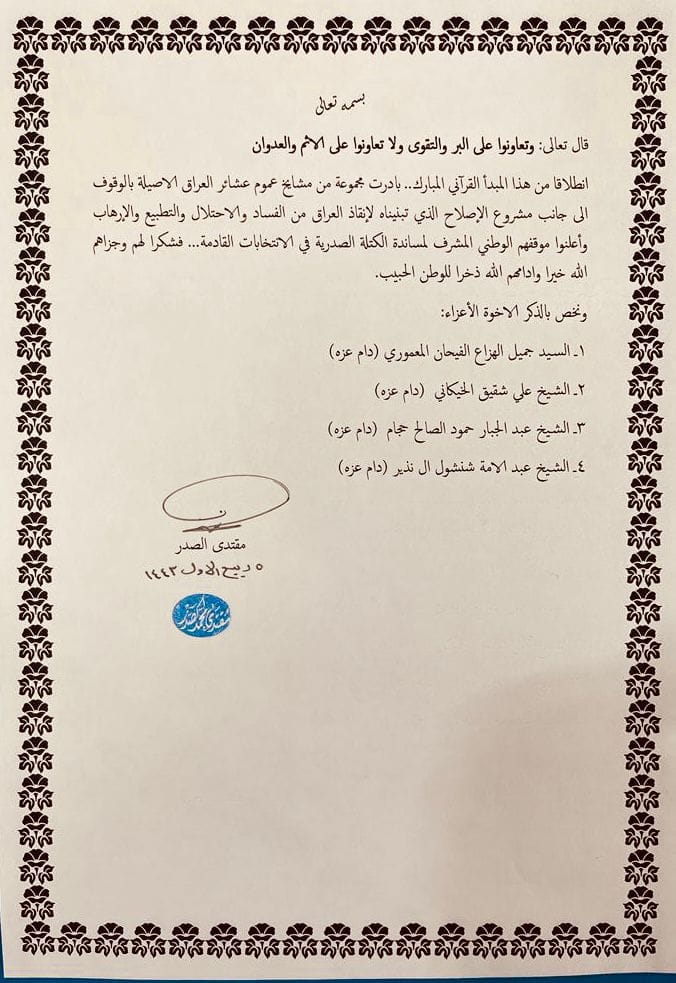 بسمه تعالى
قال تعالى: وتعاونوا على البر والتقوى ولا تعاونوا على الاثم والعدوان
انطلاقا من هذا المبدأ القرآني المبارك.. بادرت مجموعة من مشايخ عموم عشائر العراق الاصيلة بالوقوف
الى جانب مشروع الإصلاح الذي تبنيناه لإنقاذ العراق من الفساد والاحتلال والتطبيع والإرهاب
وأعلنوا موقفهم الوطني المشرف لمساندة الكتلة الصدرية في الانتخابات القادمة... فشكرا لهم وجزاهم
الله خيرا وادامهم الله ذخرا للوطن الحبيب.
ونخص بالذكر الاخوة الأعزاء:
١ـ السيد جميل الهزاع الفيحان المعموري (دام عزه)
٢ـ الشيخ علي شقيق الخيكاني (دام عزه)
٣ـ الشيخ عبد الجبار حمود الصالح حجام (دام عزه)
٤ـ الشيخ عبد الامة شنشول ال نذير (دام عزه)
مقتدى الصدر
٥ ربيع الاول ١٤٤٣